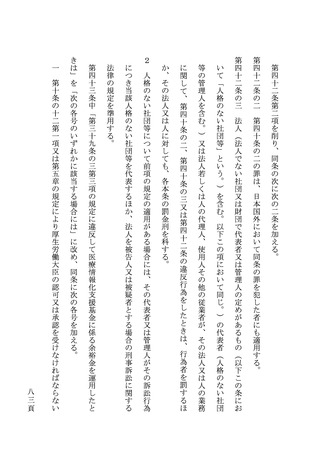 第四十二条第二項を削り、同条の次に次の二条を加える。
第四十二条の二　第四十条の二の罪は、日本国外において同条の罪を犯した者にも適用する。
第四十二条の三　法人（法人でない社団又は財団で代表者又は管理人の定めがあるもの（以下この条にお
いて「人格のない社団等」という。）を含む。以下この項において同じ。）の代表者（人格のない社団
等の管理人を含む。）又は法人若しくは人の代理人、使用人その他の従業者が、その法人又は人の業務
に関して、第四十条の二、第四十条の三又は第四十二条の違反行為をしたときは、行為者を罰するほ
か、その法人又は人に対しても、各本条の罰金刑を科する。
２　人格のない社団等について前項の規定の適用がある場合には、その代表者又は管理人がその訴訟行為
につき当該人格のない社団等を代表するほか、法人を被告人又は被疑者とする場合の刑事訴訟に関する
法律の規定を準用する。
第四十三条中「第三十九条の三第二項の規定に違反して医療情報化支援基金に係る余裕金を運用したと
きは」を「次の各号のいずれかに該当する場合には」に改め、同条に次の各号を加える。
一　第十条の十二第一項又は第五章の規定により厚生労働大臣の認可又は承認を受けなければならない
八三頁